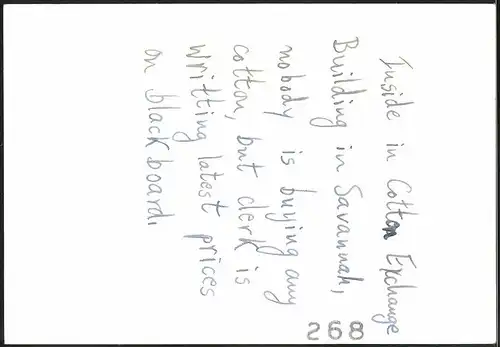 Inside in Cotton Exchange
Building in Savannah,
nobody is buying any
cotton, but clerk is
writting latest prices
on black board.
268